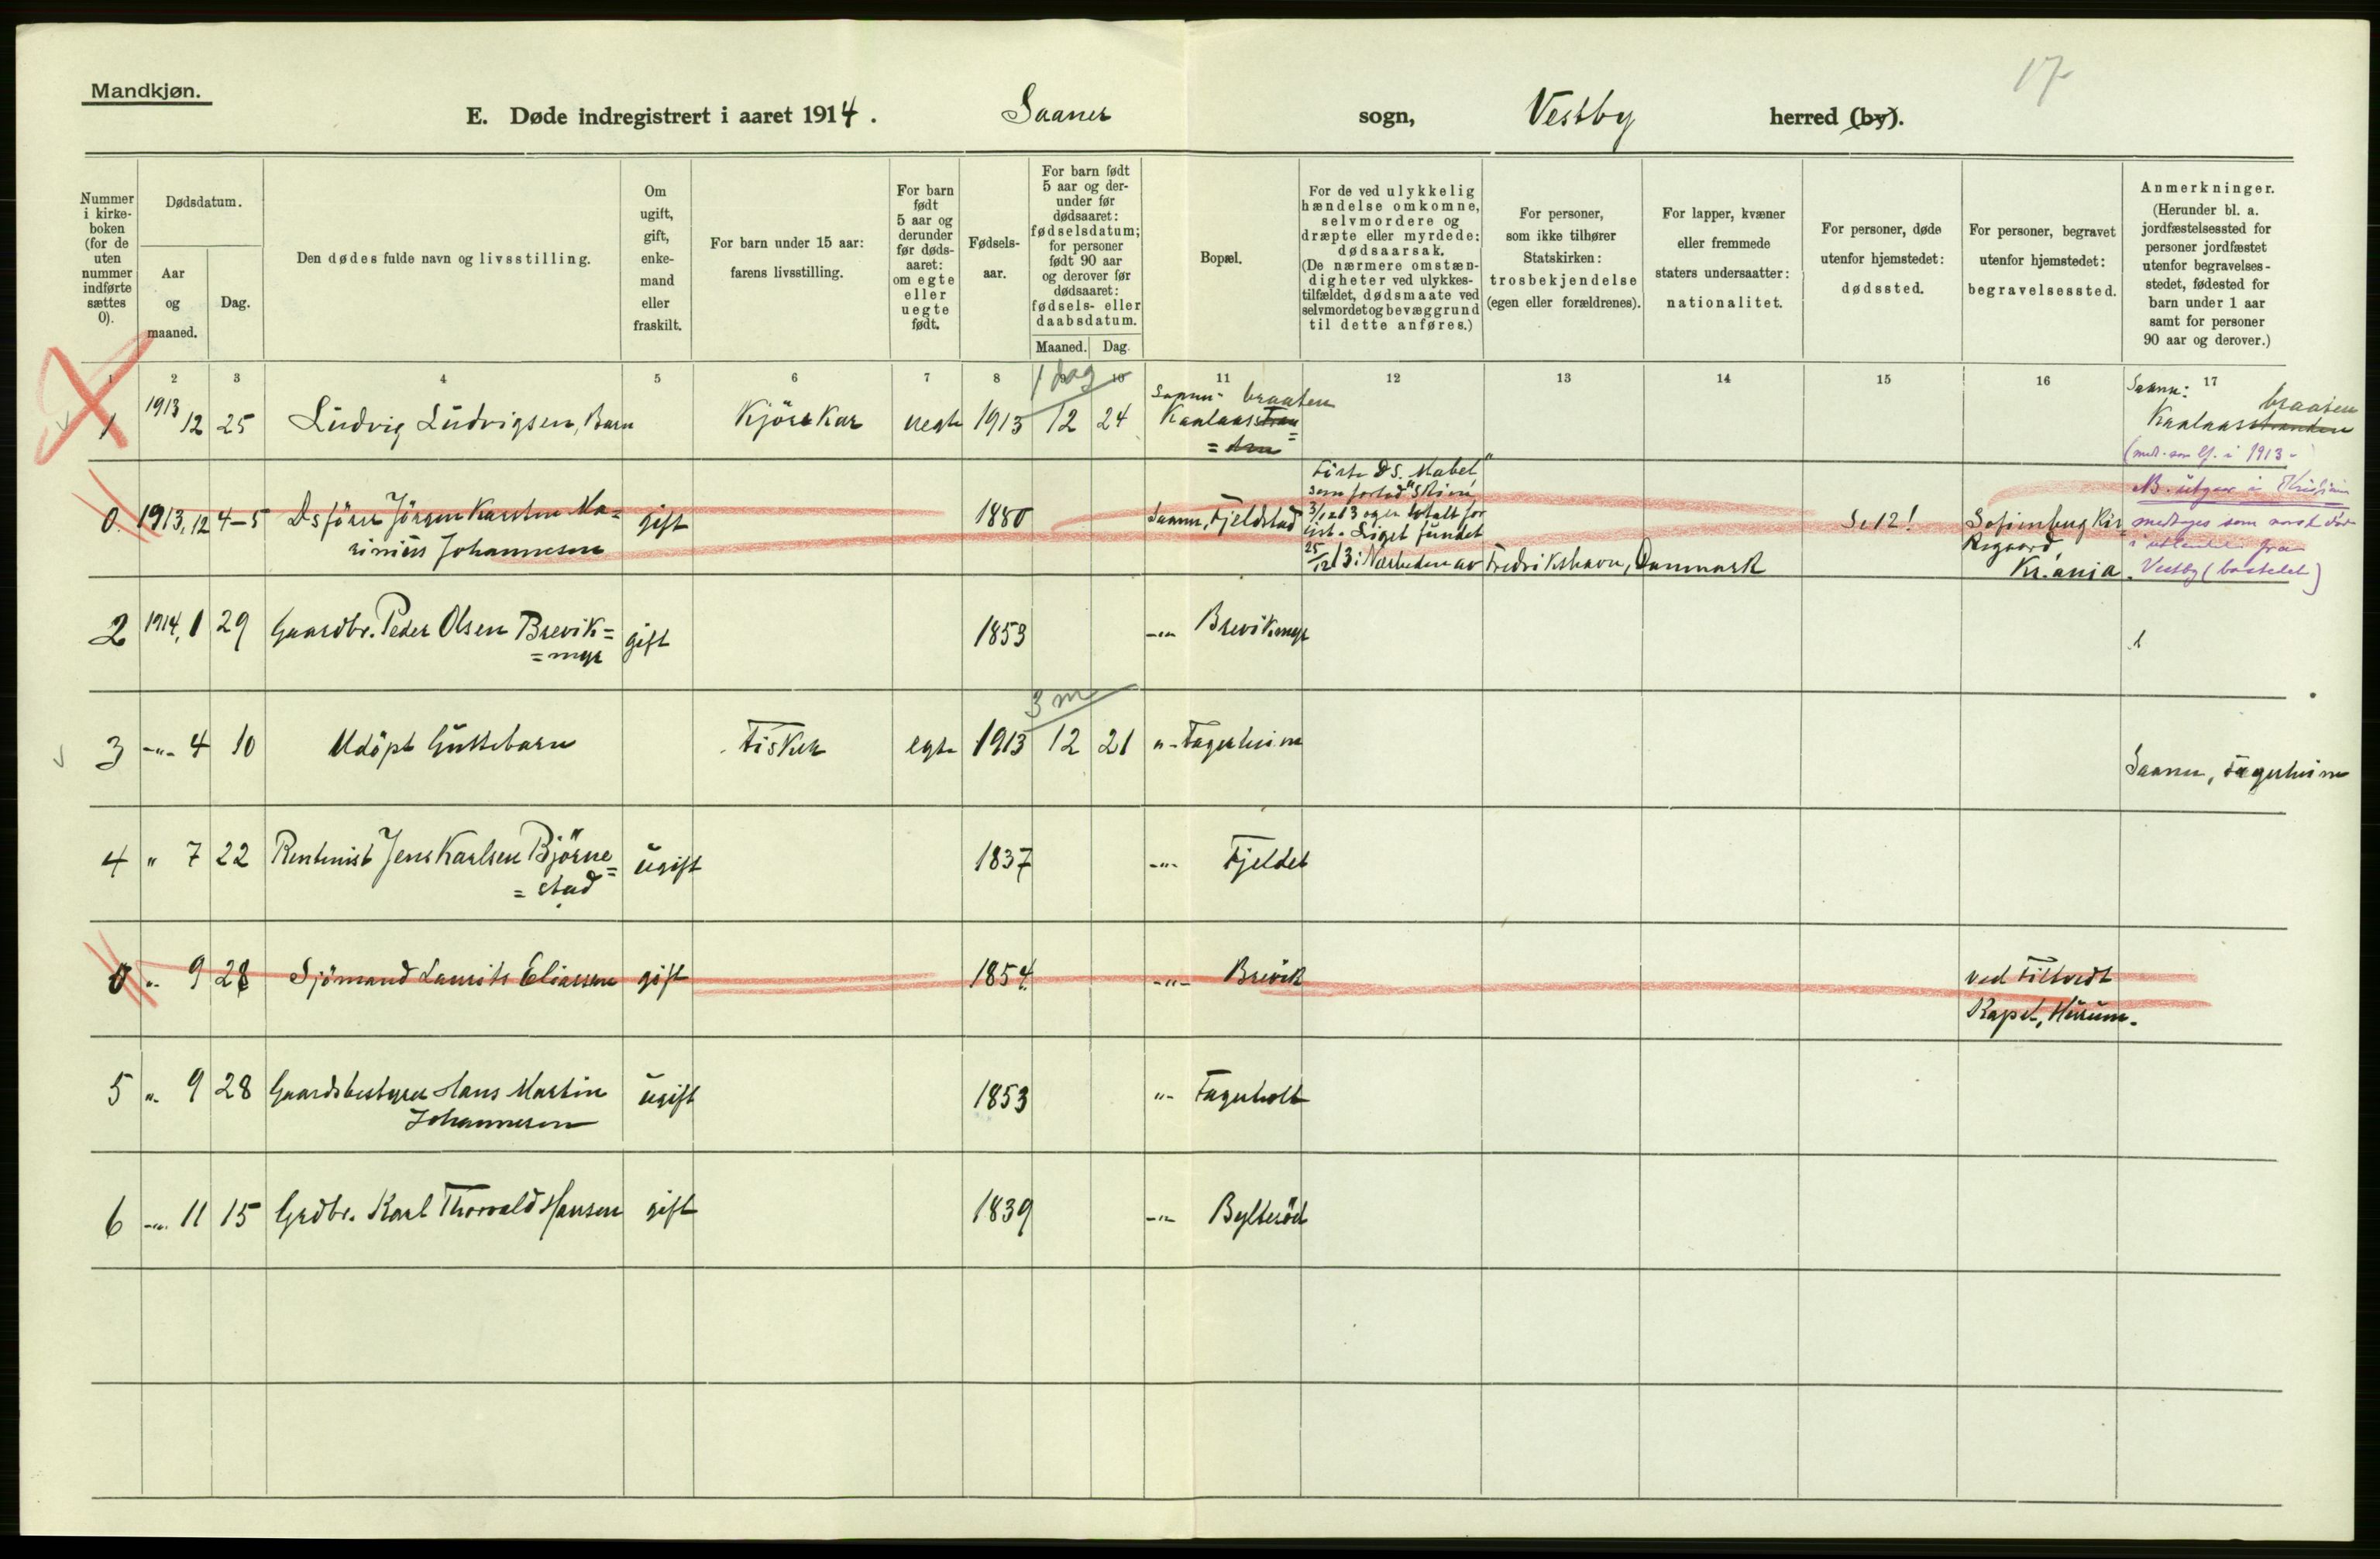 17
Mandkjøn.
E. Døde indregistrert i aaret 1914. Saaner sogn, Vestby herred (by).
Nummer i kirke-boken (for de uten nummer indførte sættes 0).
Dødsdatum.
Aar og maaned.
Dag.
Den dødes fulde navn og livsstilling.
Om ugift, gift, enke-mand eller fraskilt.
For barn under 15 aar: farens livsstilling.
For barn født 5 aar og derunder før døds-aaret: om egte eller uegte født.
Fødsels-aar.
For barn født 5 aar og der-under før dødsaaret: fødselsdatum; for personer født 90 aar og derover før dødsaaret: fødsels- eller daabsdatum.
Maaned. Dag.
Bopæl.
For de ved ulykkelig hændelse omkomne, selvmordere og dræpte eller myrdede: dødsaarsak. (De nærmere omstæn-digheter ved ulykkes-tilfældet, dødsmaate ved selvmordet og bevæggrund til dette anføres.)
For personer, som ikke tilhører Statskirken: trosbekjendelse (egen eller forældrenes).
For lapper, kvæner eller fremmede staters undersaatter: nationalitet.
For personer, døde utenfor hjemstedet: dødssted.
For personer, begravet utenfor hjemstedet: begravelsessted.
Anmerkninger. (Herunder bl. a. jordfæstelsessted for personer jordfæstet utenfor begravelses-stedet, fødested for barn under 1 aar samt for personer 90 aar og derover.)
1 2 3 4 5 6 7 8 9 10 11 12 13 14 15 16 17
1 dag
1 1913 12 25 Ludvig Ludvigsen, Barn Kjörekar uegte 1913 12 24 Saaner braaten Kaalaas Saaner: braaten Kaalaasstranden
(medt. som lf. i 1913
0. 1913, 12 4-5 Dsförer Jörgen Karsten Ma=
rinius Johannesen gift 1880 Saaner, Fjeldstad
Förte DS. "Mabel"
som forlod "Skien"
3/12 13 og er totalt for
list. Liget fundet
25/12 13 i Nærheden av Fredrikshavn, Danmark
Se 12! Sofienberg Kir=
kegaard,
Kr.ania.
NB. utgaar i
medtages som norsk död
i utlandet fra
Vestby (bostedet)
2 1914, 1 29 Gaardbr. Peder Olsen Brevik=
=myr gift 1853 -"- Brevikmyr
3 m
3 -"- 4 10 Udöpt Guttebarn Fisker egte 1913 12 21 "- Fagerheim Saaner, Fagerheim
4 " 7 22 Rentenist Jens Karlsen Björne=
=stad ugift 1837 -"- Fjeldet
0 " 9 28 Sjömand Laurits Eliassen gift 1854 -"- Brevik ved Filtvedt
Kapel, Hurum.
5 " 9 28 Gaardsbestyrer Hans Martin
Johannesen ugift 1853 "- Fagerholt
6 -"- 11 15 Grdbr. Karl Thorvald Hansen gift 1839 -"- Bylteröd